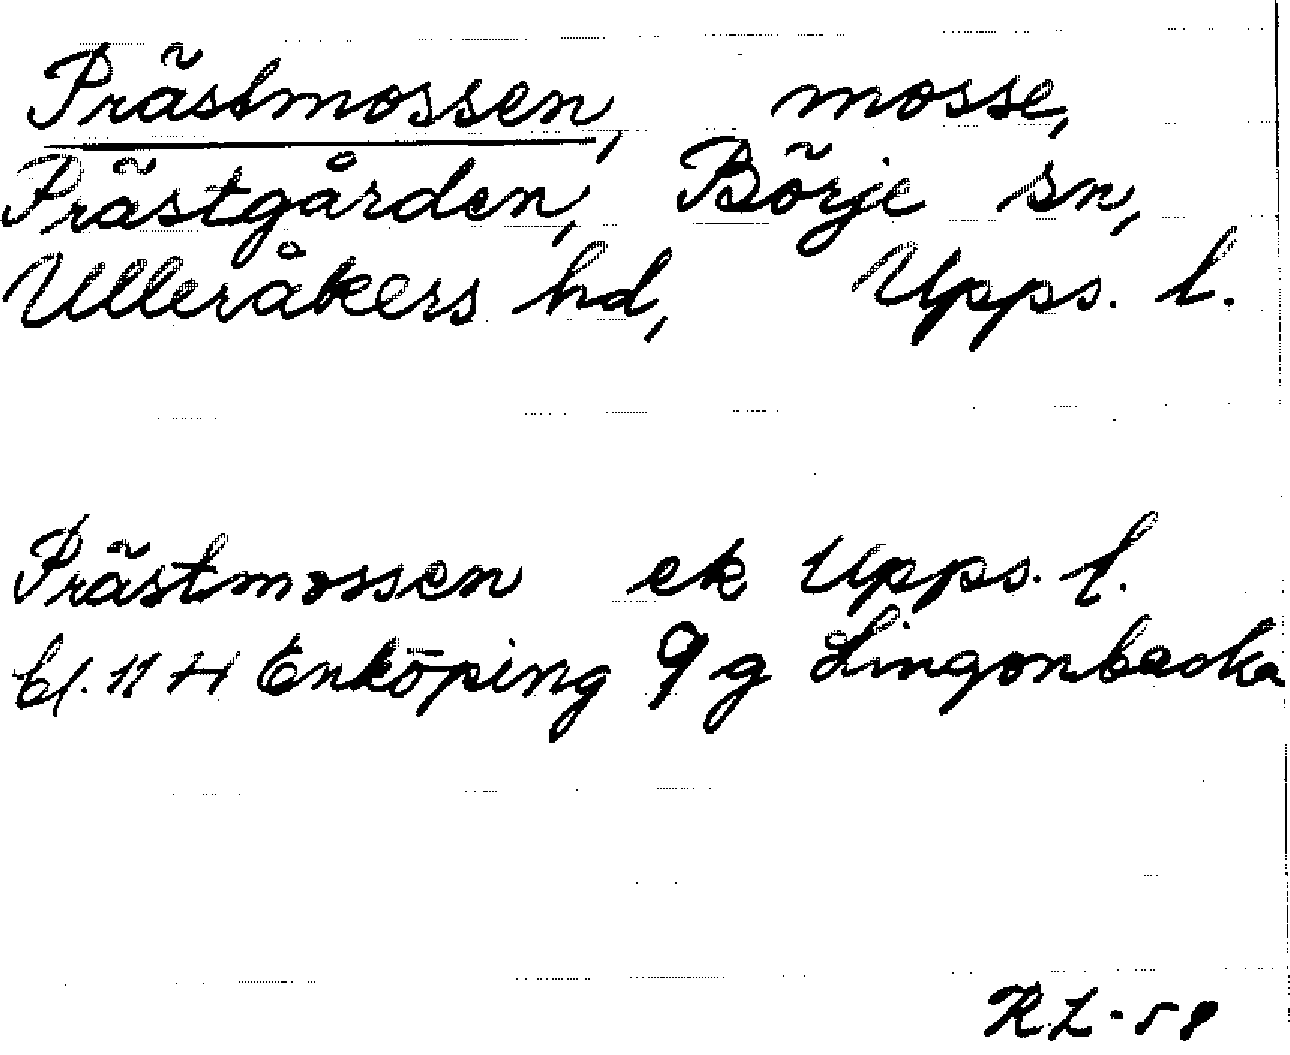 Prästmossen, mosse,
Prästgården, Börje sn,
Ulleråkers hd, Upps. l.
Prästmossen ek Upps. l.
bl. 11 H Enköping 9 g Lingonbacka
RL-59